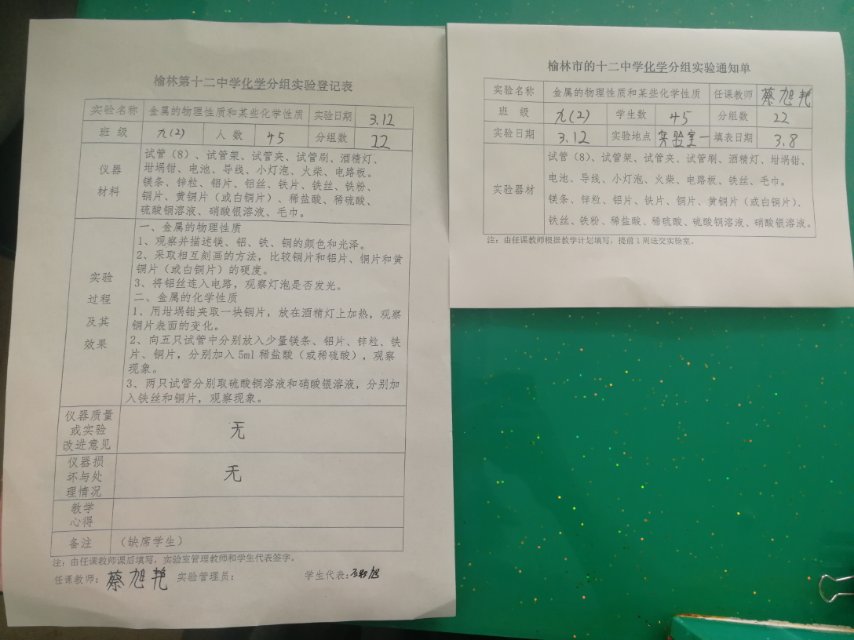 榆林第十二中学化学分组实验登记表
实验名称 金属的物理性质和某些化学性质 实验日期 3.12
班 级 九(2) 人 数 45 分组数 22
仪器
材料
试管（8）、试管架、试管夹、试管刷、酒精灯、
坩埚钳、电池、导线、小灯泡、火柴、电路板。
镁条、锌粒、铝片、铝丝、铁片、铁丝、铁粉、
铜片、黄铜片（或白铜片）、稀盐酸、稀硫酸、
硫酸铜溶液、硝酸银溶液、毛巾。
实验
过程
及其
效果
一、金属的物理性质
1、观察并描述镁、铝、铁、铜的颜色和光泽。
2、采取相互刻画的方法，比较铜片和铝片、铜片和黄
铜片（或白铜片）的硬度。
3、将铝丝连入电路，观察灯泡是否发光。
二、金属的化学性质
1、用坩埚钳夹取一块铜片，放在酒精灯上加热，观察
铜片表面的变化。
2、向五只试管中分别放入少量镁条、铝片、锌粒、铁
片、铜片，分别加入5ml稀盐酸（或稀硫酸），观察
现象。
3、两只试管分别取硫酸铜溶液和硝酸银溶液，分别加
入铁丝和铜片，观察现象。
仪器质量
或实验
改进意见
无
仪器损
坏与处
理情况
无
教学
心得
备注 （缺席学生）
注：由任课教师课后填写，实验室管理教师和学生代表签字。
任课教师：蔡旭艳 实验管理员： 学生代表：
榆林市的十二中学化学分组实验通知单
实验名称 金属的物理性质和某些化学性质 任课教师 蔡旭艳
班 级 九(2) 学生数 45 分组数 22
实验日期 3.12 实验地点 实验室一 填表日期 3.8
实验器材
试管（8）、试管架、试管夹、试管刷、酒精灯、坩埚钳、
电池、导线、小灯泡、火柴、电路板、铁丝、毛巾。
镁条、锌粒、铝片、铁片、铜片、黄铜片（或白铜片）、
铁丝、铁粉、稀盐酸、稀硫酸、硫酸铜溶液、硝酸银溶液。
注：由任课教师根据教学计划填写，提前1周送交实验室。